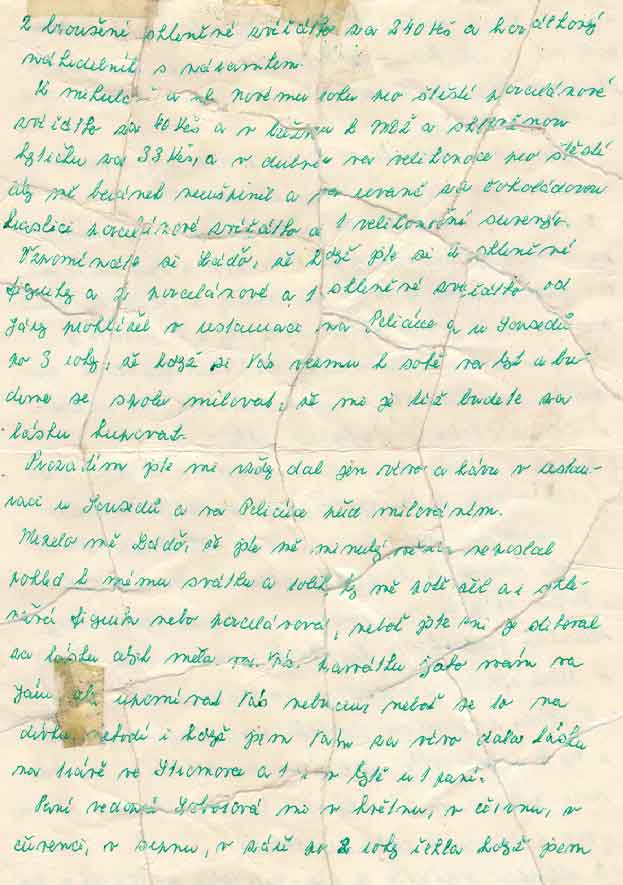 2 broušené skleněné zvířátko za 240 Kčs a korálkový
náhrdelník s náramkem.
K a k novému roku pro štěstí porcelánové
zvířátko za 40 Kčs a v březnu k MDŽ a skleněnou
kytičku za 33 Kčs, a v dubnu na velikonoce pro štěstí
aby mě beránek neušpinil a za čokoládovou
kraslici porcelánové zvířátko a 1 velikonoční
Vzpomínáte si Láďo, že když jste si u skleněné
figurky a 2 porcelánové a 1 skleněné zvířátko od
Jány prohlížel v restauraci na Pelicáce a u Sousedů
po 3 roky, že když si Vás vezmu k sobě na byt a bu-
deme se spolu milovat, že mi je též budete za
lásku kupovat.
Prozatím jste mi vždy dal jen víno a kávu v restau-
raci u Sousedů a na Pelicáce před milováním.
Mrzelo mě Láďo, že jste mě minulý neposlal
pohled k mému svátku a tolik by mě potě šil a i skle-
něná figurka nebo porcelánová, neboť jste mi je sliboval
za lásku abych měla na Vás památku jako mám na
Jánu ale upomínat Vás nebudu, neboť se to na
dívku nehodí i když jsem Vám za víno dala lásku
na trávě ve Stromovce a 1 x v bytě u 1 paní.
Paní vedoucí mi v květnu, v červnu, v
červenci, v srpnu, v září po 2 roky řekla když jsem